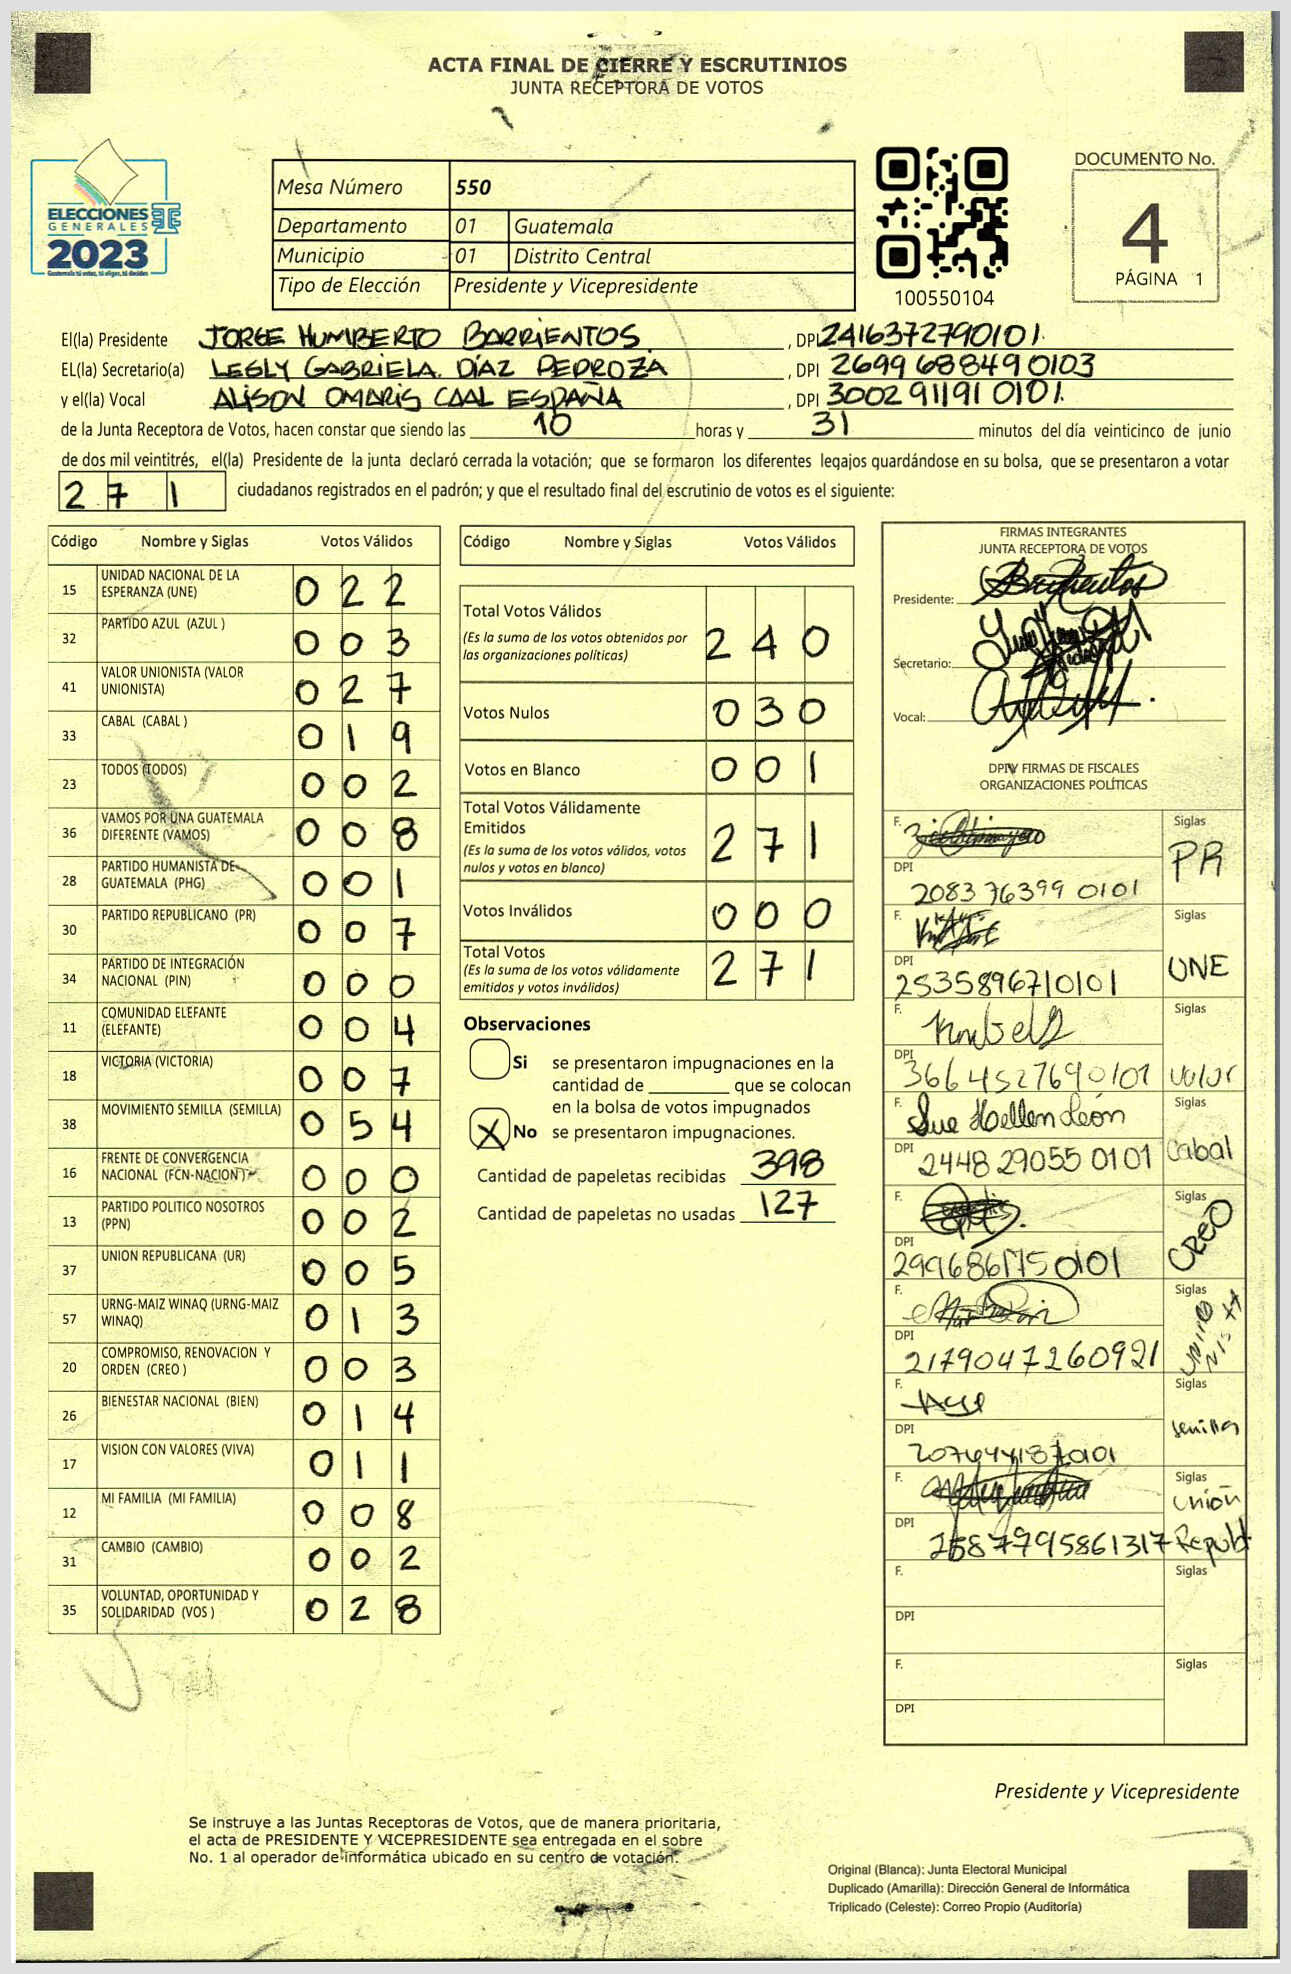 ACTA FINAL DE CIERRE Y ESCRUTINIOS
JUNTA RECEPTORA DE VOTOS
ELECCIONES
GENERALES
2023
Guatemala tú votas, tú eliges, tú decides
Mesa Número 550
Departamento 01 Guatemala
Municipio 01 Distrito Central
Tipo de Elección Presidente y Vicepresidente
100550104
DOCUMENTO No.
4
PÁGINA 1
El(la) Presidente JORGE HUMBERTO BARRIENTOS, DPI 2416372790101
EL(la) Secretario(a) LESLY GABRIELA DÍAZ PEDROZA, DPI 2699 68849 0103
y el(la) Vocal ALISON OMARIS CAAL ESPAÑA, DPI 3002 91191 0101.
de la Junta Receptora de Votos, hacen constar que siendo las 10 horas y 31 minutos del día veinticinco de junio
de dos mil veintitrés, el(la) Presidente de la junta declaró cerrada la votación; que se formaron los diferentes legajos guardándose en su bolsa, que se presentaron a votar
271 ciudadanos registrados en el padrón; y que el resultado final del escrutinio de votos es el siguiente:
Código Nombre y Siglas Votos Válidos
15 UNIDAD NACIONAL DE LA ESPERANZA (UNE) 022
32 PARTIDO AZUL (AZUL ) 003
41 VALOR UNIONISTA (VALOR UNIONISTA) 027
33 CABAL (CABAL ) 019
23 TODOS (TODOS) 002
36 VAMOS POR UNA GUATEMALA DIFERENTE (VAMOS) 008
28 PARTIDO HUMANISTA DE GUATEMALA (PHG) 001
30 PARTIDO REPUBLICANO (PR) 007
34 PARTIDO DE INTEGRACIÓN NACIONAL (PIN) 000
11 COMUNIDAD ELEFANTE (ELEFANTE) 004
18 VICTORIA (VICTORIA) 007
38 MOVIMIENTO SEMILLA (SEMILLA) 054
16 FRENTE DE CONVERGENCIA NACIONAL (FCN-NACION) 000
13 PARTIDO POLITICO NOSOTROS (PPN) 002
37 UNION REPUBLICANA (UR) 005
57 URNG-MAIZ WINAQ (URNG-MAIZ WINAQ) 013
20 COMPROMISO, RENOVACION Y ORDEN (CREO ) 003
26 BIENESTAR NACIONAL (BIEN) 014
17 VISION CON VALORES (VIVA) 011
12 MI FAMILIA (MI FAMILIA) 008
31 CAMBIO (CAMBIO) 002
35 VOLUNTAD, OPORTUNIDAD Y SOLIDARIDAD (VOS ) 028
Código Nombre y Siglas Votos Válidos
Total Votos Válidos 240
(Es la suma de los votos obtenidos por
las organizaciones políticas)
Votos Nulos 030
Votos en Blanco 001
Total Votos Válidamente
Emitidos 271
(Es la suma de los votos válidos, votos
nulos y votos en blanco)
Votos Inválidos 000
Total Votos 271
(Es la suma de los votos válidamente
emitidos y votos inválidos)
Observaciones
Si se presentaron impugnaciones en la
cantidad de ________ que se colocan
en la bolsa de votos impugnados
X No se presentaron impugnaciones.
Cantidad de papeletas recibidas 398
Cantidad de papeletas no usadas 127
FIRMAS INTEGRANTES
JUNTA RECEPTORA DE VOTOS
Presidente:
Secretario:
Vocal:
DPI Y FIRMAS DE FISCALES
ORGANIZACIONES POLÍTICAS
F. Siglas PR
DPI 2083 76399 0101
F. Siglas UNE
DPI 2535896710101
F. Siglas Valor
DPI 3664527690101
F. Sue Hellen León Siglas Cabal
DPI 2448 29055 0101
F. Siglas CREO
DPI 2996861750101
F. Siglas UNIONISTA
DPI 2179047260921
F. Siglas Semilla
DPI
F. Siglas Unión Republ
DPI 2587995861317
F. Siglas
DPI
F. Siglas
DPI
Presidente y Vicepresidente
Se instruye a las Juntas Receptoras de Votos, que de manera prioritaria,
el acta de PRESIDENTE Y VICEPRESIDENTE sea entregada en el sobre
No. 1 al operador de informática ubicado en su centro de votación.
Original (Blanca): Junta Electoral Municipal
Duplicado (Amarilla): Dirección General de Informática
Triplicado (Celeste): Correo Propio (Auditoría)